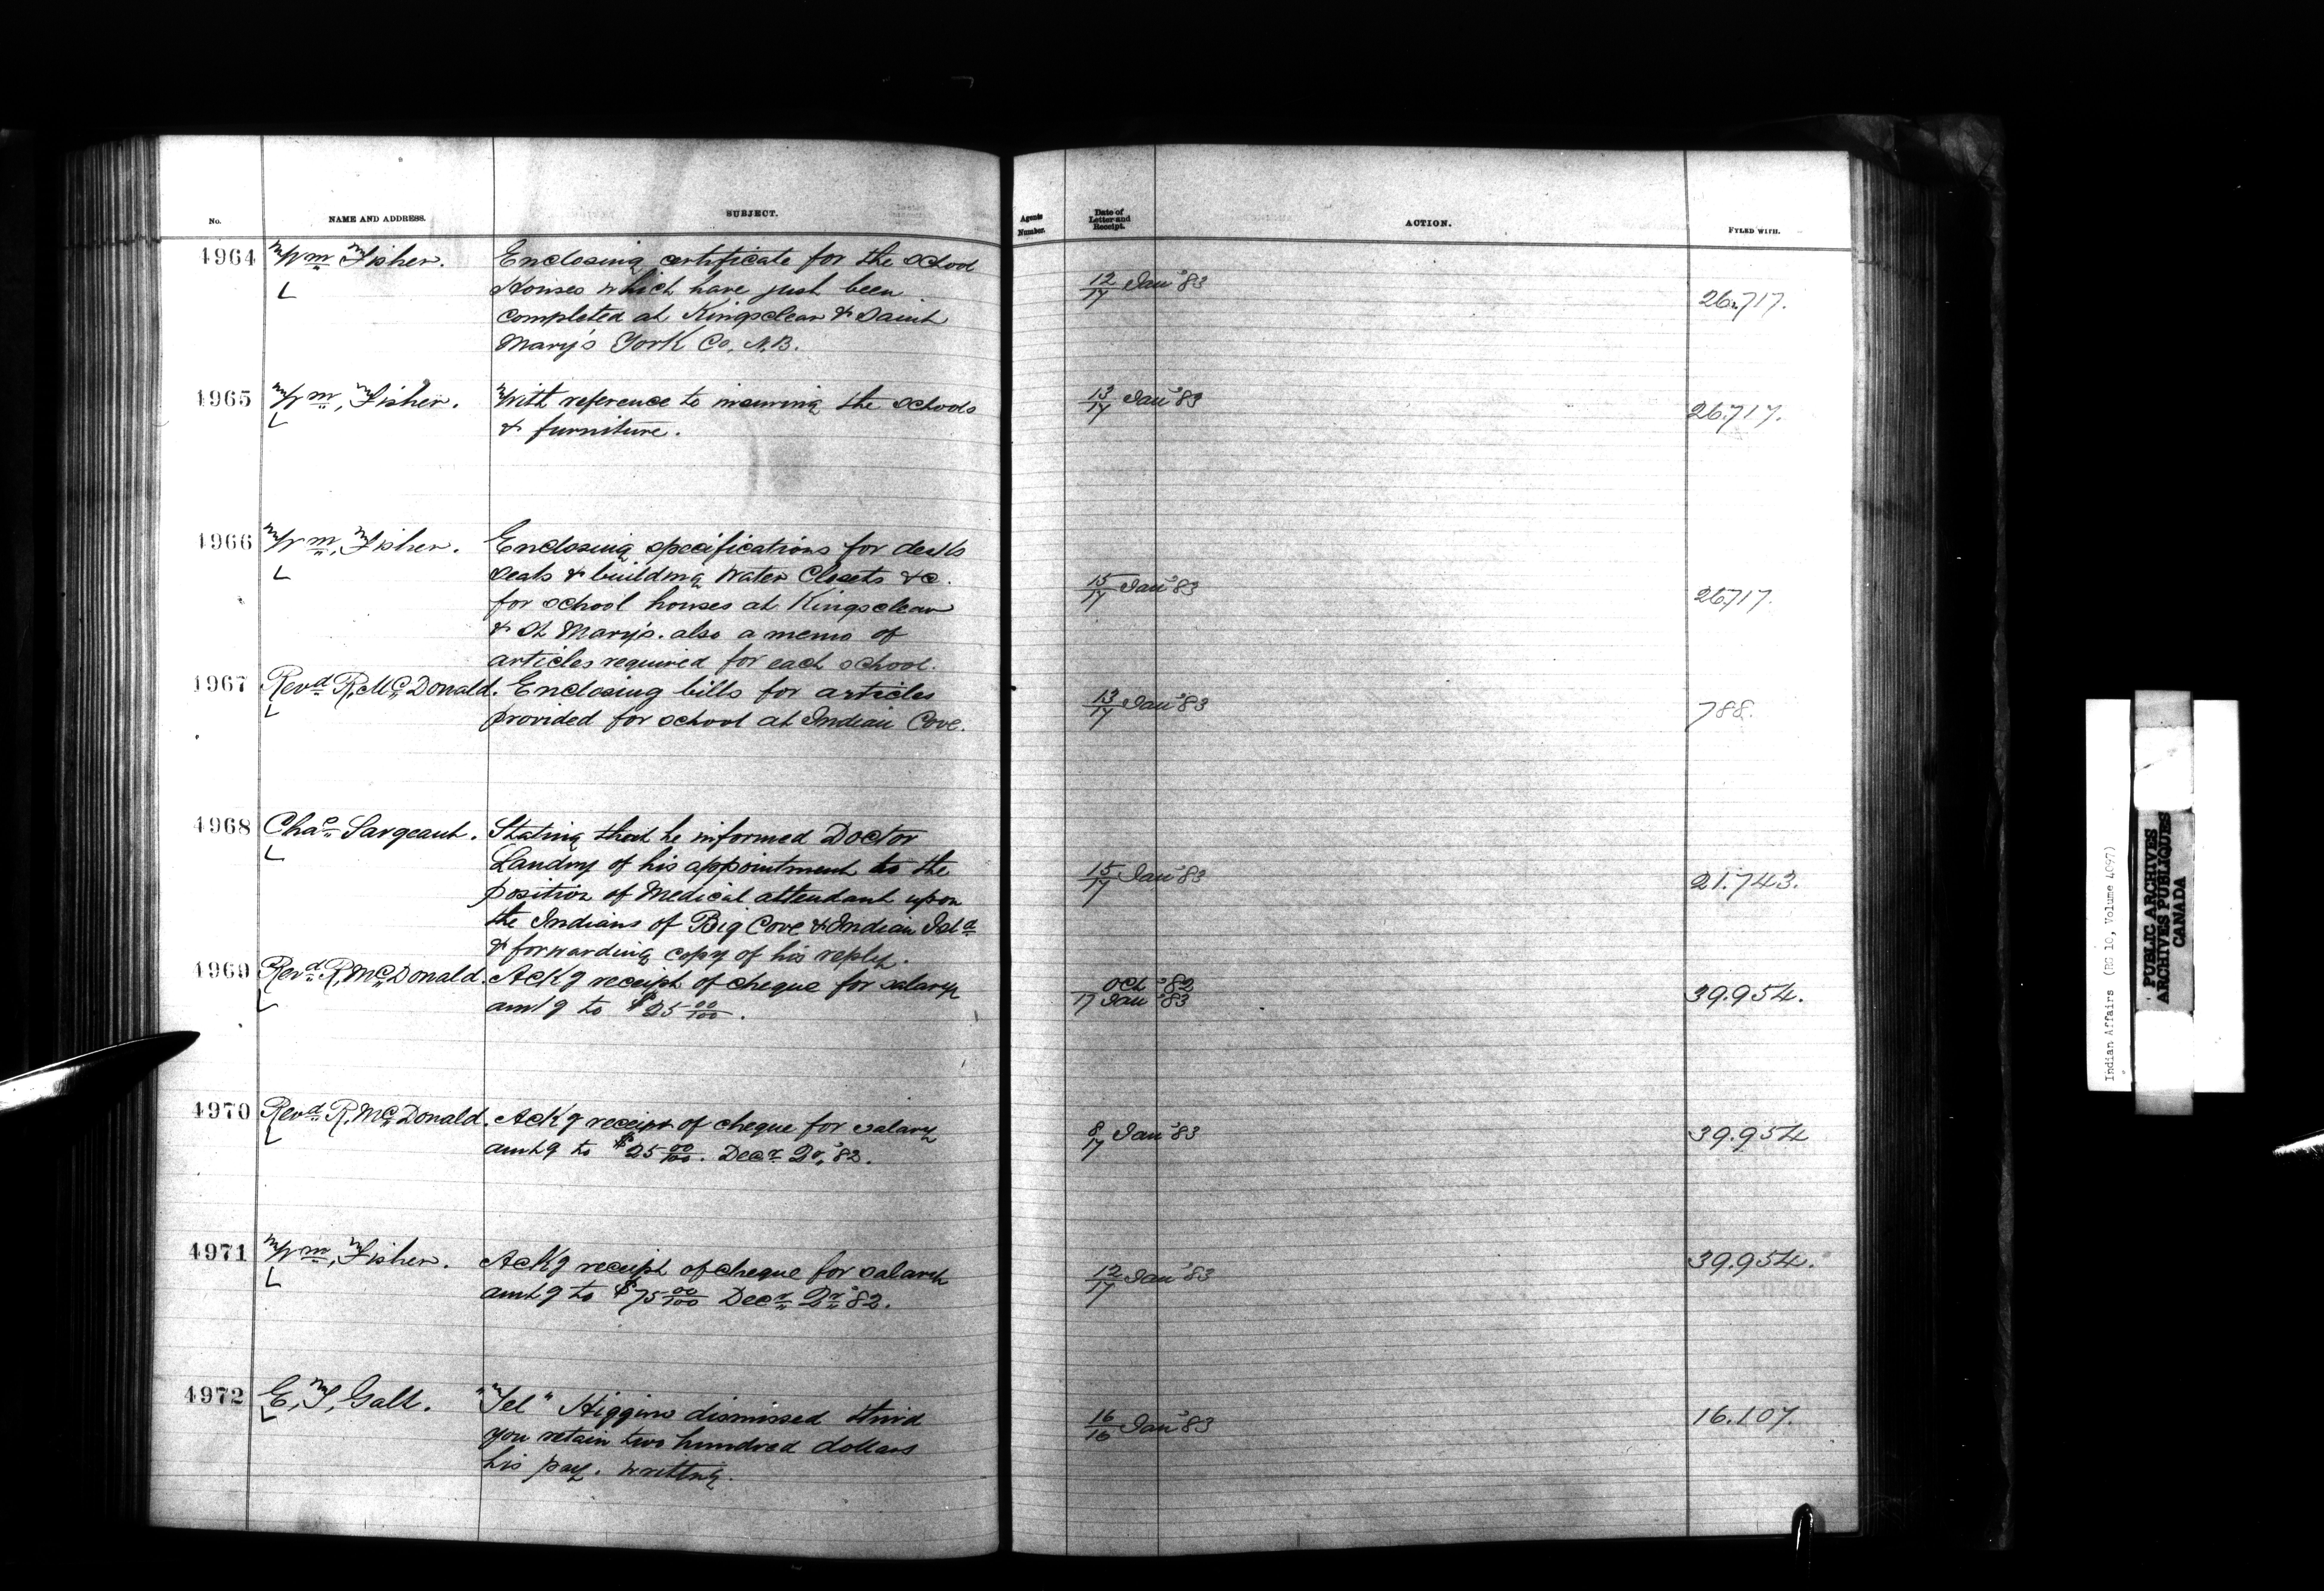 No. NAME AND ADDRESS. SUBJECT. Agents Number. Date of Letter and Receipt. ACTION. FYLED WITH.
4964 Wm Fisher. Enclosing certificate for the School
L Houses which have just been 12/17 Jan '83 26.717.
completed at Kingsclear & Saint
Mary's York Co. N.B.
4965 Wm, Fisher. With reference to insuring the Schools 13/17 Jan '83 26.717.
L & furniture.
4966 Wm, Fisher. Enclosing specifications for desks
L Seats & building Water Closets &c. 15/17 Jan '83 26.717.
for school houses at Kingsclear
& St Mary's. also a memo of
articles required for each school.
4967 Revd R, McDonald. Enclosing bills for articles 13/17 Jan '83 788.
L provided for school at Indian Cove.
4968 Chas Sargeant. Stating that he informed Doctor
L Landry of his appointment to the 15/17 Jan '83 21.743.
position of Medical attendant upon
the Indians of Big Cove & Indian Isld
& forwarding copy of his reply.
4969 Revd R, McDonald. Ackg receipt of cheque for salary Oct '82
L amtg to $25 00/100. 17 Jan '83 39.954.
4970 Revd R, McDonald. Ackg receipt of cheque for salary 8/17 Jan '83 39.954
L amtg to $25 00/100. Decr Qr, '82.
4971 Wm, Fisher. Ackg receipt of cheque for salary 12/17 Jan '83 39.954.
L amtg to $75 00/100 Decr Qr '82.
4972 E, T, Galt. "Tel" Higgins dismissed third 16/16 Jan '83 16.107.
L you retain two hundred dollars
his pay. writing.
Indian Affairs (RG 10, Volume 4097)
PUBLIC ARCHIVES
ARCHIVES PUBLIQUES
CANADA